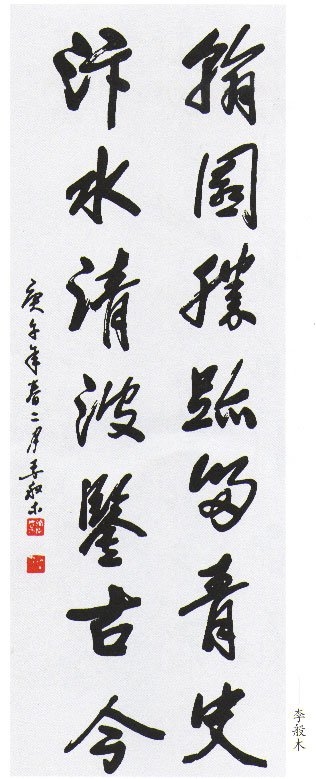 翰園勝跡留青史
汴水清波鑒古今
庚午年春二月李般木
李般木